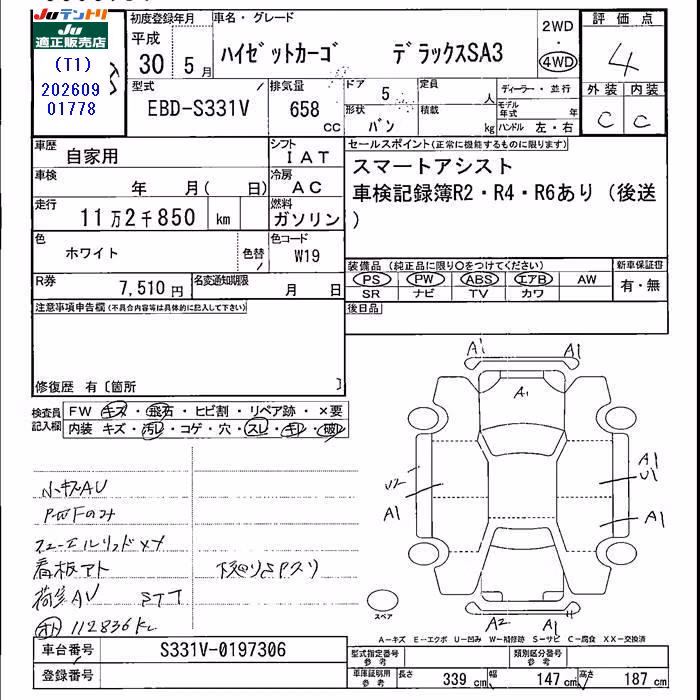 Juテントリ
Ju
適正販売店
(T1)
202609
01778
初度登録年月
平成
30 5 月
車名・グレード
ハイゼットカーゴ デラックスSA3
2WD
4WD
評価点
4
型式
EBD-S331V
排気量
658 cc
ドア
5
形状
バン
定員
人
積載
kg
ディーラー・並行
モデル年式
年
ハンドル 左・右
外装 内装
C C
車歴
自家用
シフト
IAT
車検
年 月( 日)
冷房
AC
走行
11万2千850 km
燃料
ガソリン
色
ホワイト
色替
色コード
W19
R券
7,510円
名変通知期限
月 日
セールスポイント(正常に機能するものに限ります)
スマートアシスト
車検記録簿R2・R4・R6あり(後送
)
装備品(純正品に限り○をつけてください)
PS PW ABS エアB AW
SR ナビ TV カワ
新車保証書
有・無
後日品
注意事項申告欄(不具合内容等は具体的に記入して下さい)
修復歴 有〔箇所 〕
検査員記入欄
FW キズ・飛石・ヒビ割・リペア跡・×要
内装 キズ・汚レ・コゲ・穴・スレ・キレ・破レ
小キズAU
PWFのみ
フューエルリッドメメ
看板アト
下廻りSPスリ
荷室AU STT
112836k
A1 A1
A1
U2
A1
A1
U1
A1
A2 A1
スペア
A-キズ E-エクボ U-凹み W-補修跡 S-サビ C-腐食 XX-交換済
車台番号
S331V-0197306
登録番号
型式指定番号
参考
類別区分番号
参考
車庫証明用
参考
長さ 339 cm 幅 147 cm 高さ 187 cm